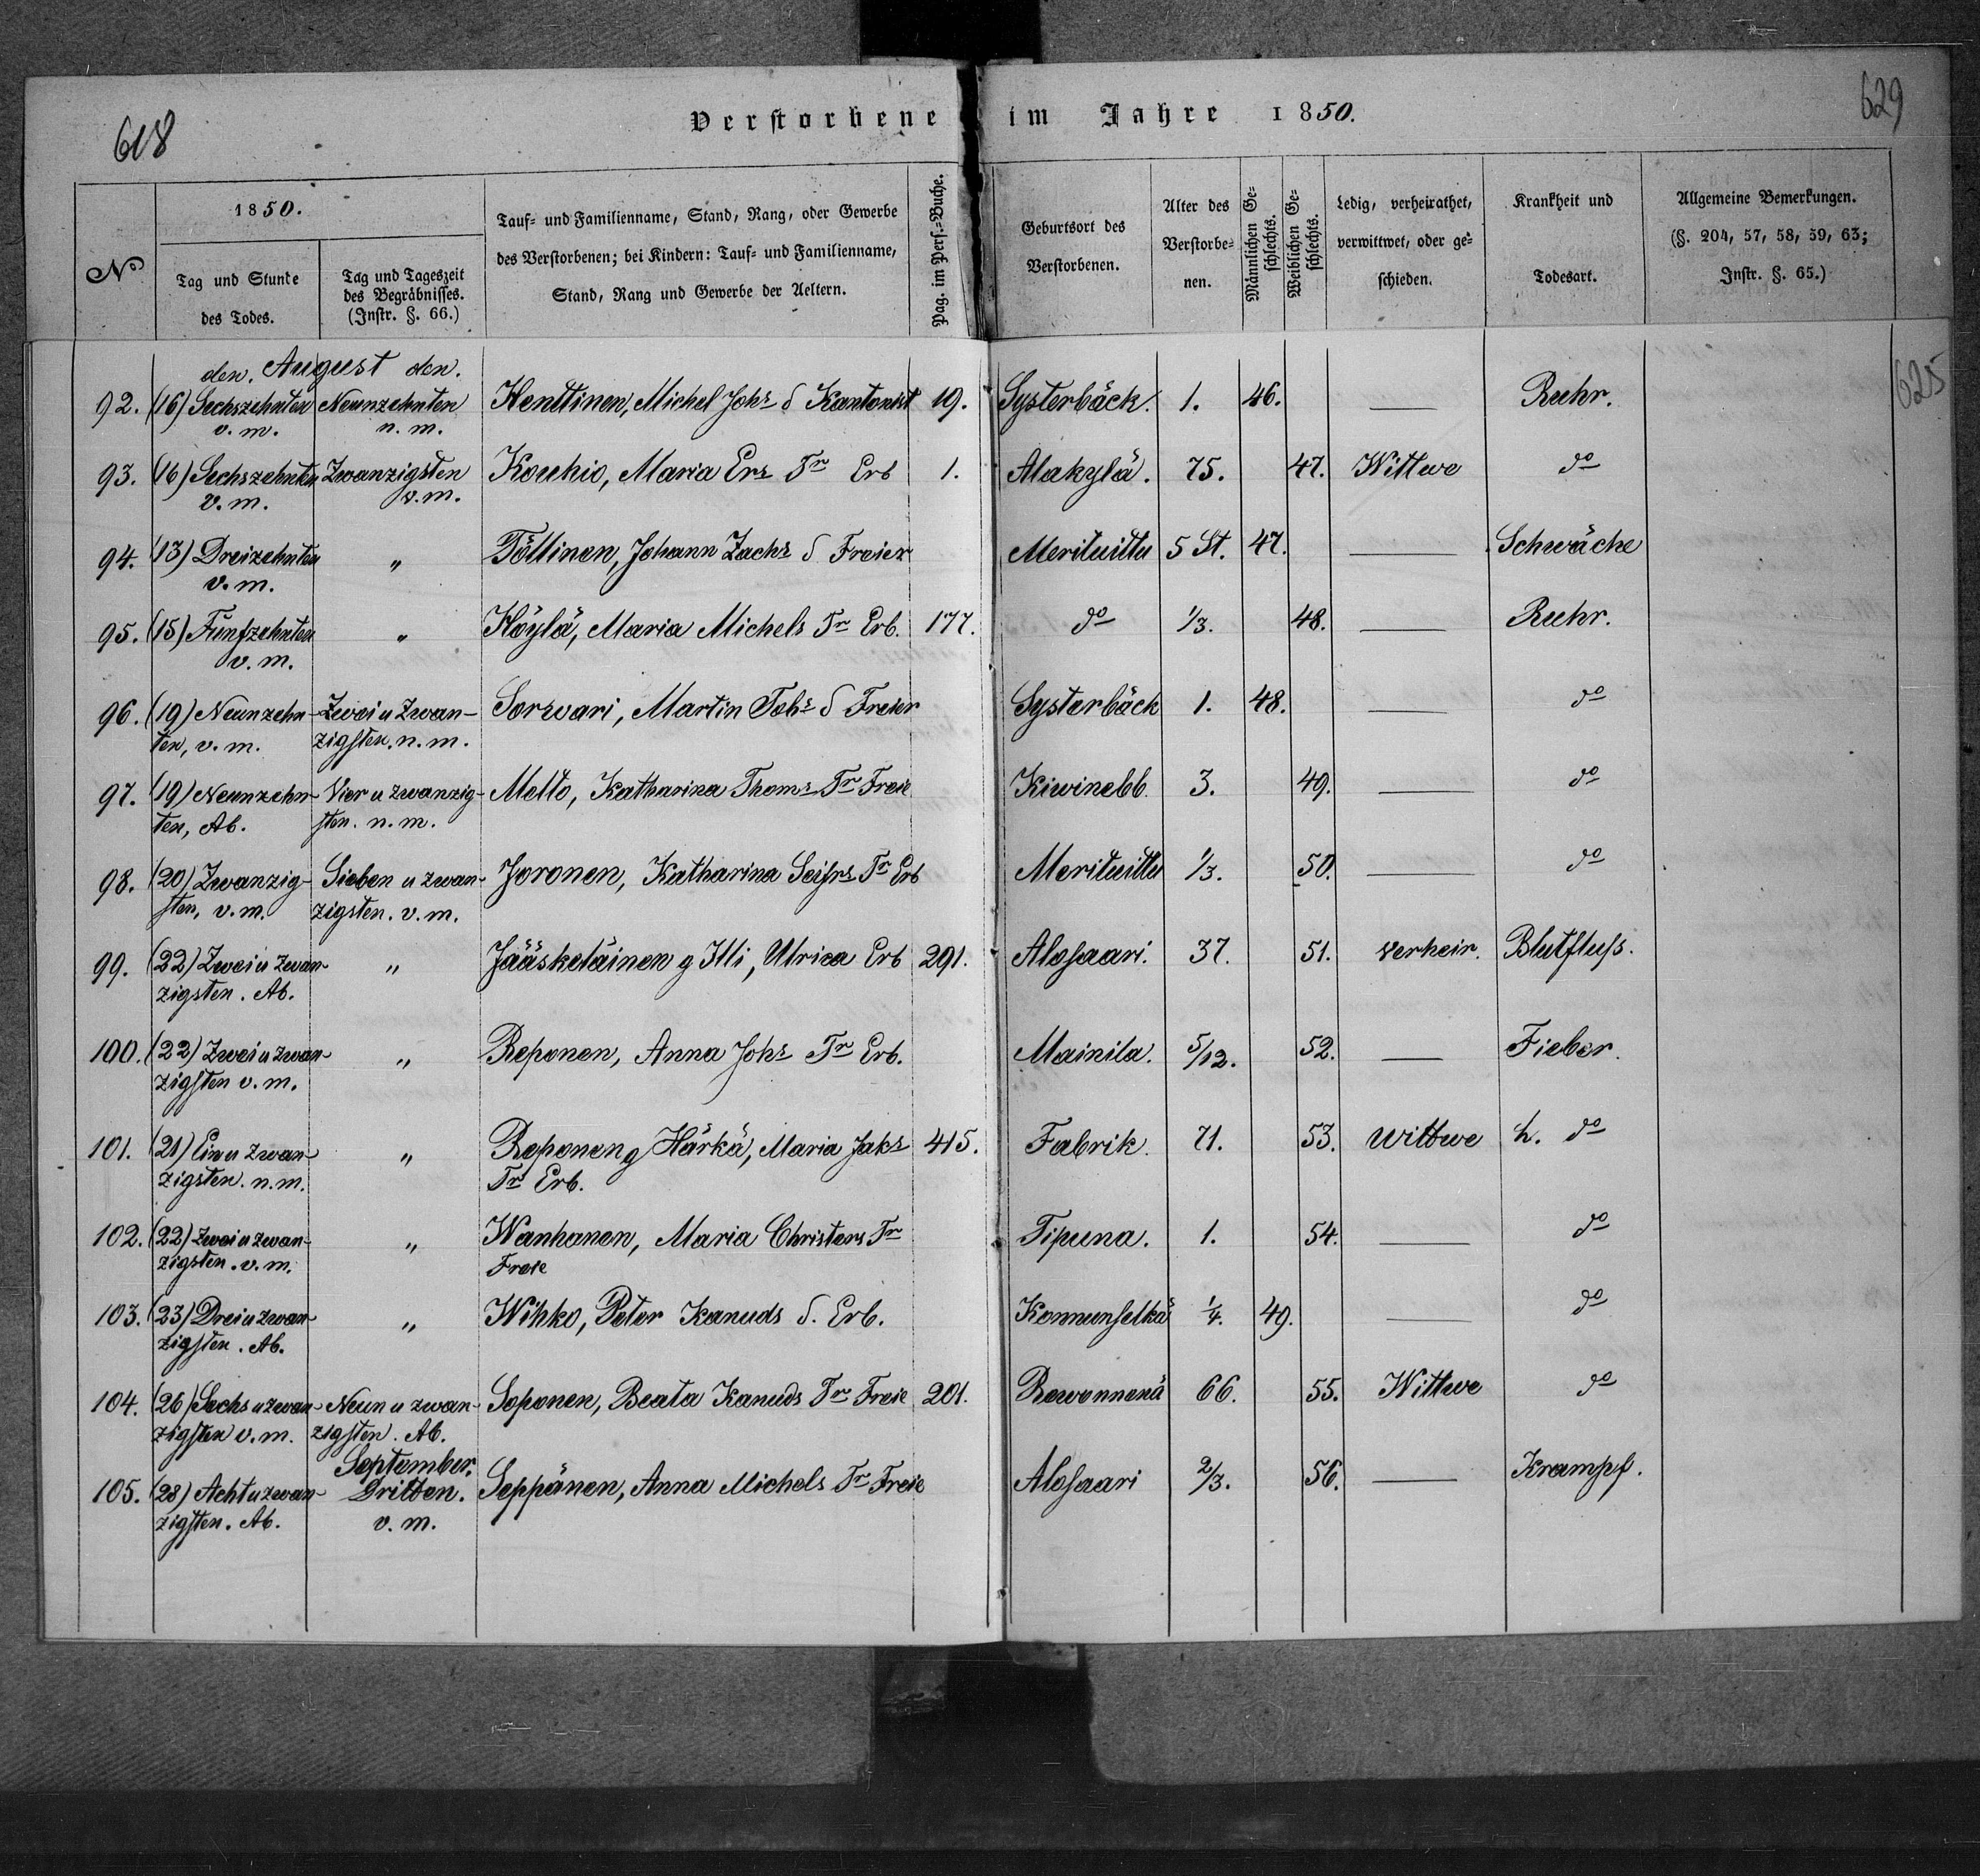 618
Verstorbene im Jahre 1850.
629
625
No
1850.
Tag und Stunde des Todes.
Tag und Tageszeit des Begräbnisses. (Instr. §. 66.)
Tauf- und Familienname, Stand, Rang, oder Gewerbe des Verstorbenen; bei Kindern: Tauf- und Familienname, Stand, Rang und Gewerbe der Aeltern.
Pag. im Pers.-Buche.
Geburtsort des Verstorbenen.
Alter des Verstorbe-nen.
Männlichen Ge-schlechts.
Weiblichen Ge-schlechts.
Ledig, verheirathet, verwittwet, oder ge-schieden.
Krankheit und Todesart.
Allgemeine Bemerkungen. (§. 204, 57, 58, 59, 63; Instr. §. 65.)
den. August den.
92. (16) Sechszehnten Neunzehnten Henttinen, Michel Johs S Kantonist 19. Systerbäck. 1. 46. — Ruhr.
v. m. n. m.
93. (16) Sechszehnten Zwanzigsten Koukio, Maria Ers Tr Erb 1. Alakylä. 75. 47. Wittwe do
v. m. v. m.
94. (13) Dreizehnten " Töllinen, Johann Zachs S Freier Merituittu 5 St. 47. — Schwäche
v. m.
95. (15) Funfzehnten " Höylä, Maria Michels Tr Erb. 177. do 1/3. 48. — Ruhr.
v. m.
96. (19) Neunzehn- Zwei u Zwan- Sorwari, Martin Tobs S Freier Systerbäck 1. 48. — do
ten, v. m. zigsten. n. m.
97. (19) Neunzehn- Vier u zwanzig- Metto, Katharina Thoms Tr Freie Kiwinebb. 3. 49. — do
ten, Ab. sten. n. m.
98. (20) Zwanzig- Sieben u zwan- Joronen, Katharina Seifrs Tr Erb Merituittu 1/3. 50. — do
sten, v. m. zigsten. v. m.
99. (22) Zwei u zwan- " Jääskeläinen g Illi, Ulrica Erb 291. Alosaari. 37. 51. Verheir. Blutfluss.
zigsten. Ab.
100. (22) Zwei u zwan- " Reponen, Anna Johs Tr Erb. Mainila. 5/12. 52. — Fieber.
zigsten v. m.
101. (21) Ein u zwan- " Reponen g Härkä, Maria Jaks 415. Fabrik. 71. 53. Wittwe h. do
zigsten. n. m. Tr Erb.
102. (22) Zwei u zwan- " Wanhanen, Maria Christers Tr Tipuna. 1. 54. — do
zigsten. v. m. Freie
103. (23) Drei u zwan- " Wihko, Peter Kanuds S. Erb. Konnunselkä 1/4. 49. — do
zigsten. Ab.
104. (26) Sechs u zwan- Neun u zwan- Soponen, Beata Kanuds Tr Freie 201. Rewonnenä 66. 55. Wittwe do
zigsten v. m. zigsten. Ab.
September.
105. (28) Acht u zwan- Dritten. Seppänen, Anna Michels Tr Freie Alosaari 2/3. 56. — Krampf.
zigsten. Ab. v. m.